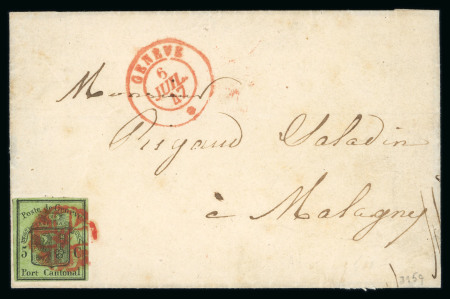 GENÈVE
6
JUIL
47
Monsieur
Rigaud Saladin
à Malagny
Poste de Genève
5 C
Port Cantonal
3959